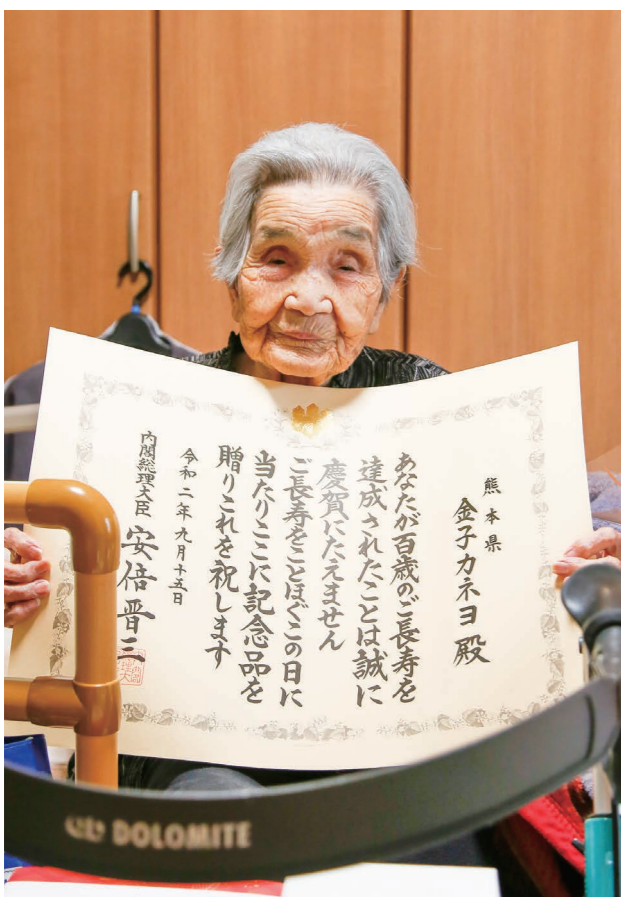 熊本県
金子カネヨ殿
あなたが百歳のご長寿を
達成されたことは誠に
慶賀にたえません
ご長寿をことほぐこの日に
当たりここに記念品を
贈りこれを祝します
令和二年九月十五日
内閣総理大臣 安倍晋三
DOLOMITE